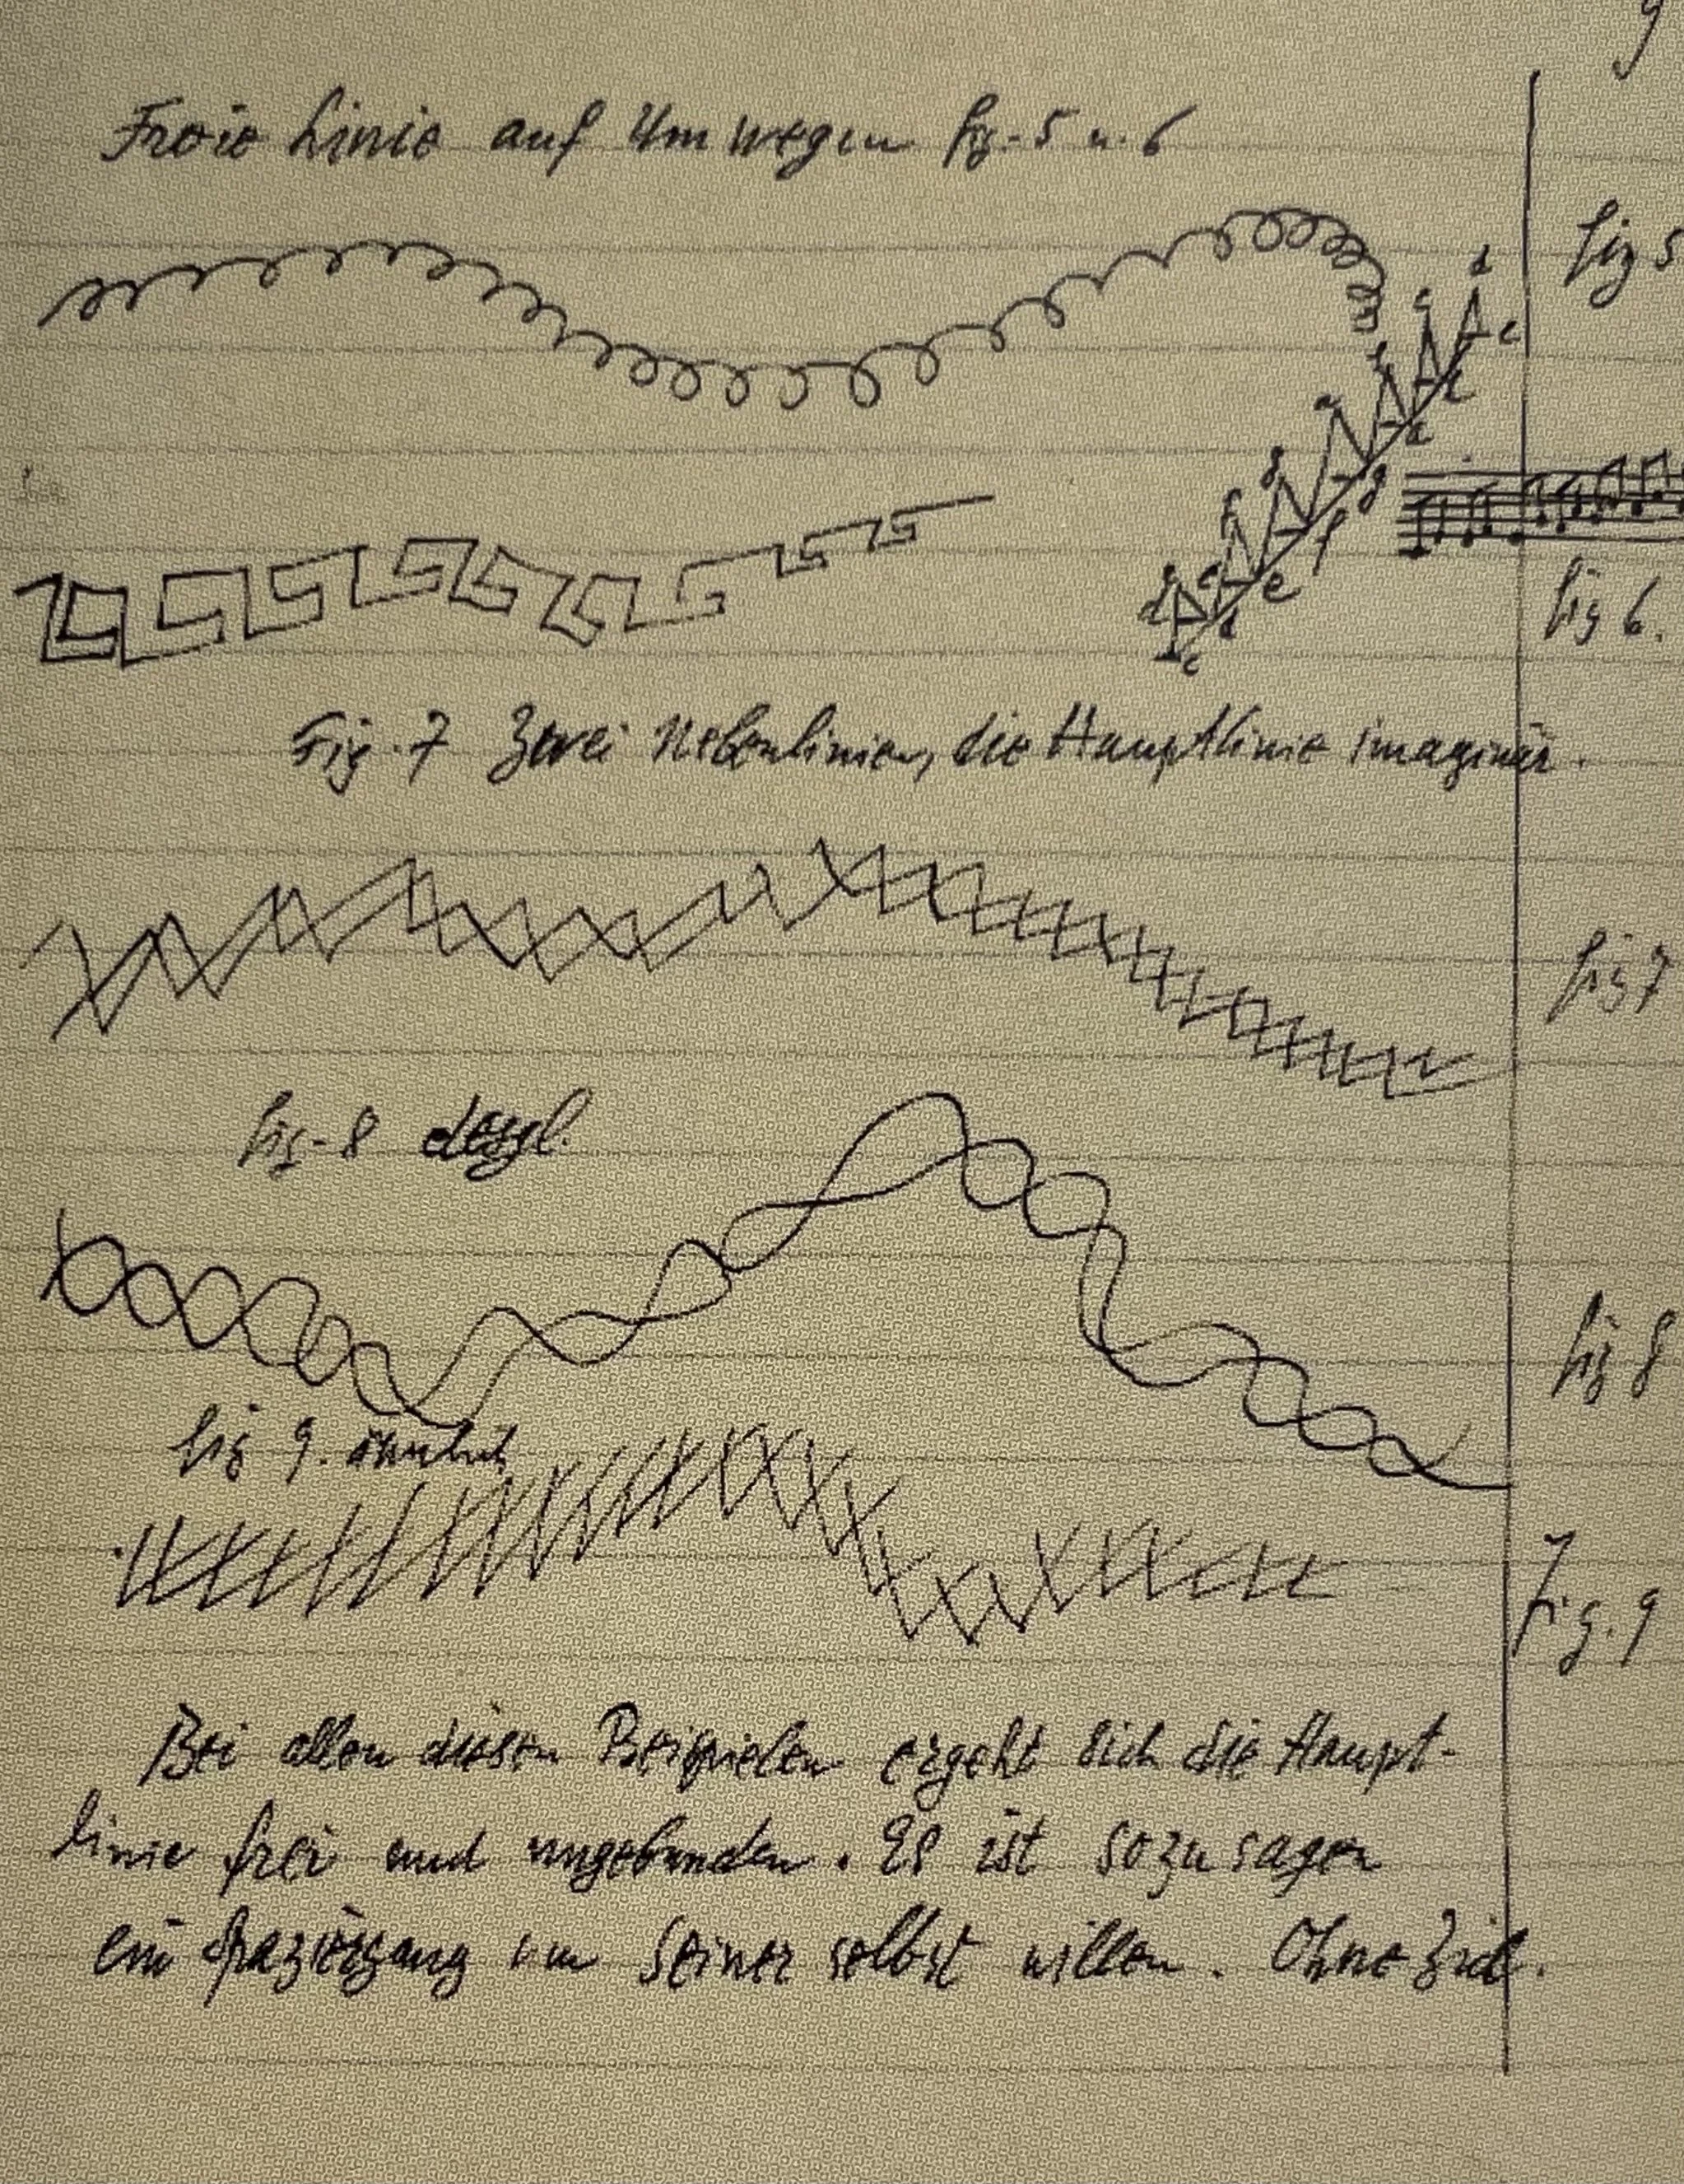 9
Freie Linie auf Umwegen fig. 5 u. 6
fig 5
d
c e
h
a
a
g g
f f
e e
d d
c
fig 6.
Fig. 7 Zwei Nebenlinien, die Hauptlinie imaginär.
fig 7
fig. 8 desgl.
fig 8
fig 9. ähnlich
Fig. 9
Bei allen diesen Beispielen ergeht sich die Haupt-
linie frei und ungebunden. Es ist sozusagen
ein Spaziergang um seiner selbst willen. Ohne Ziel.